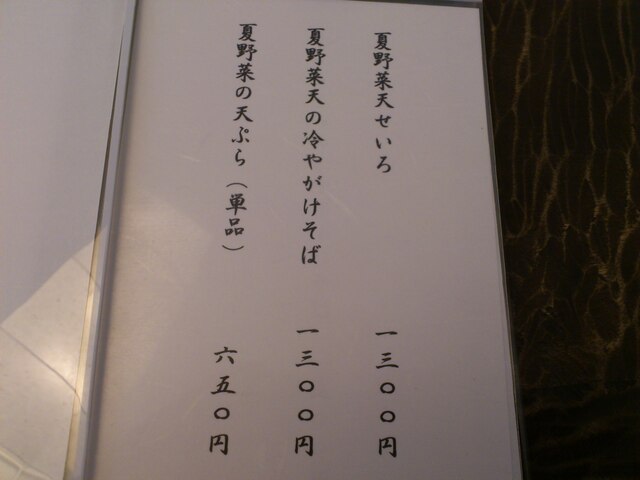 夏野菜天せいろ 一三〇〇円
夏野菜天の冷やがけそば 一三〇〇円
夏野菜の天ぷら（単品） 六五〇円